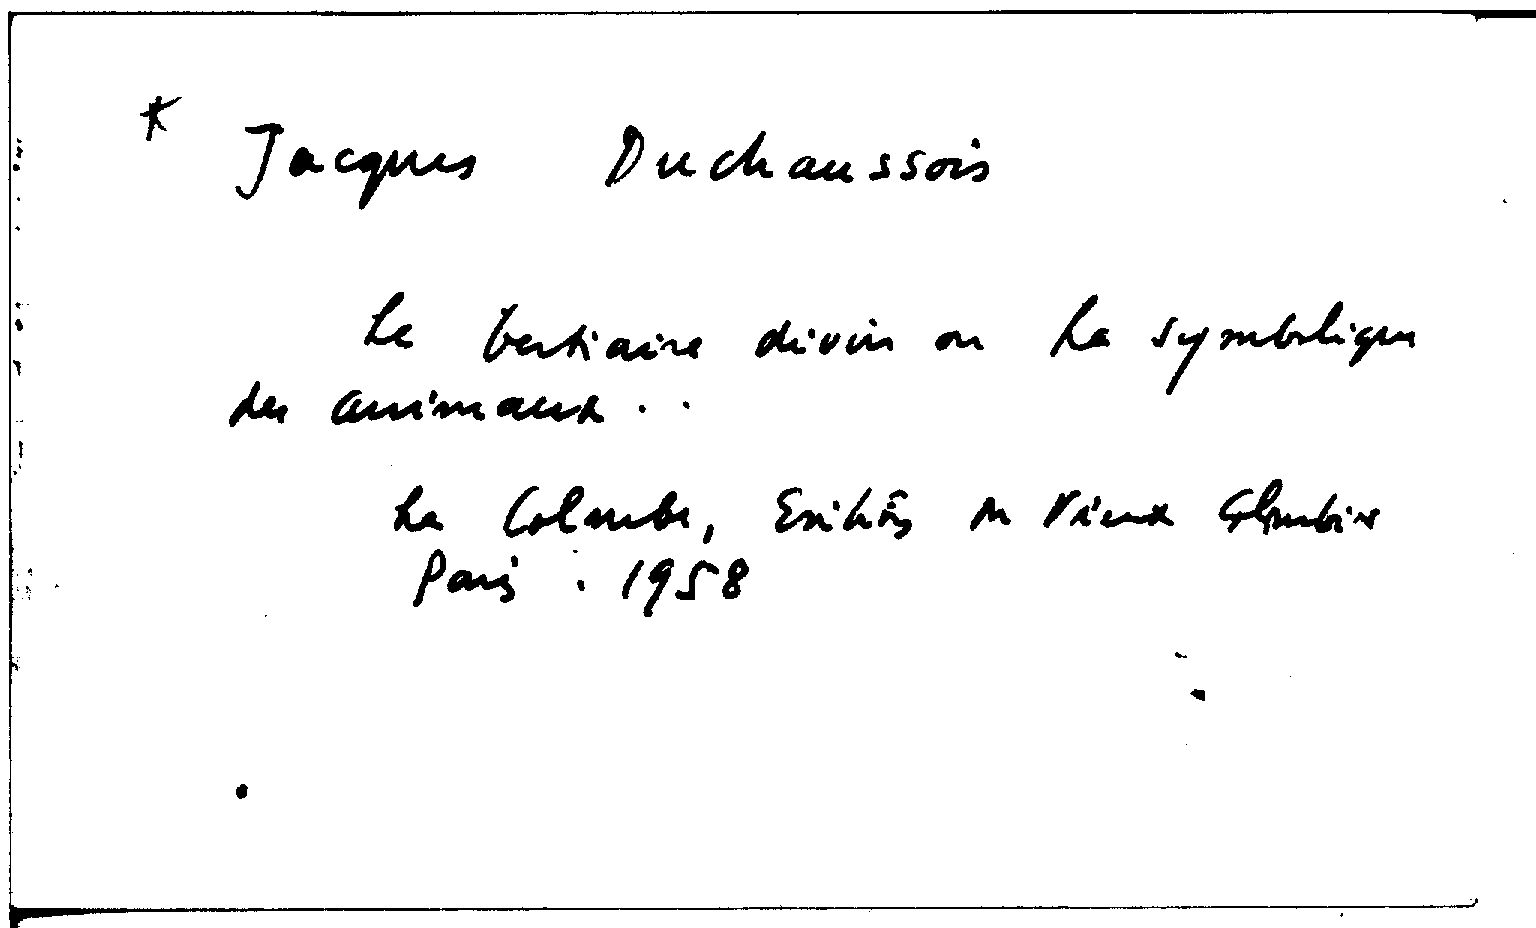 * Jacques Duchaussois
Le bestiaire divin ou La symbolique
des animaux . .
La Colombe, Editions du Vieux Colombier
Paris . 1958